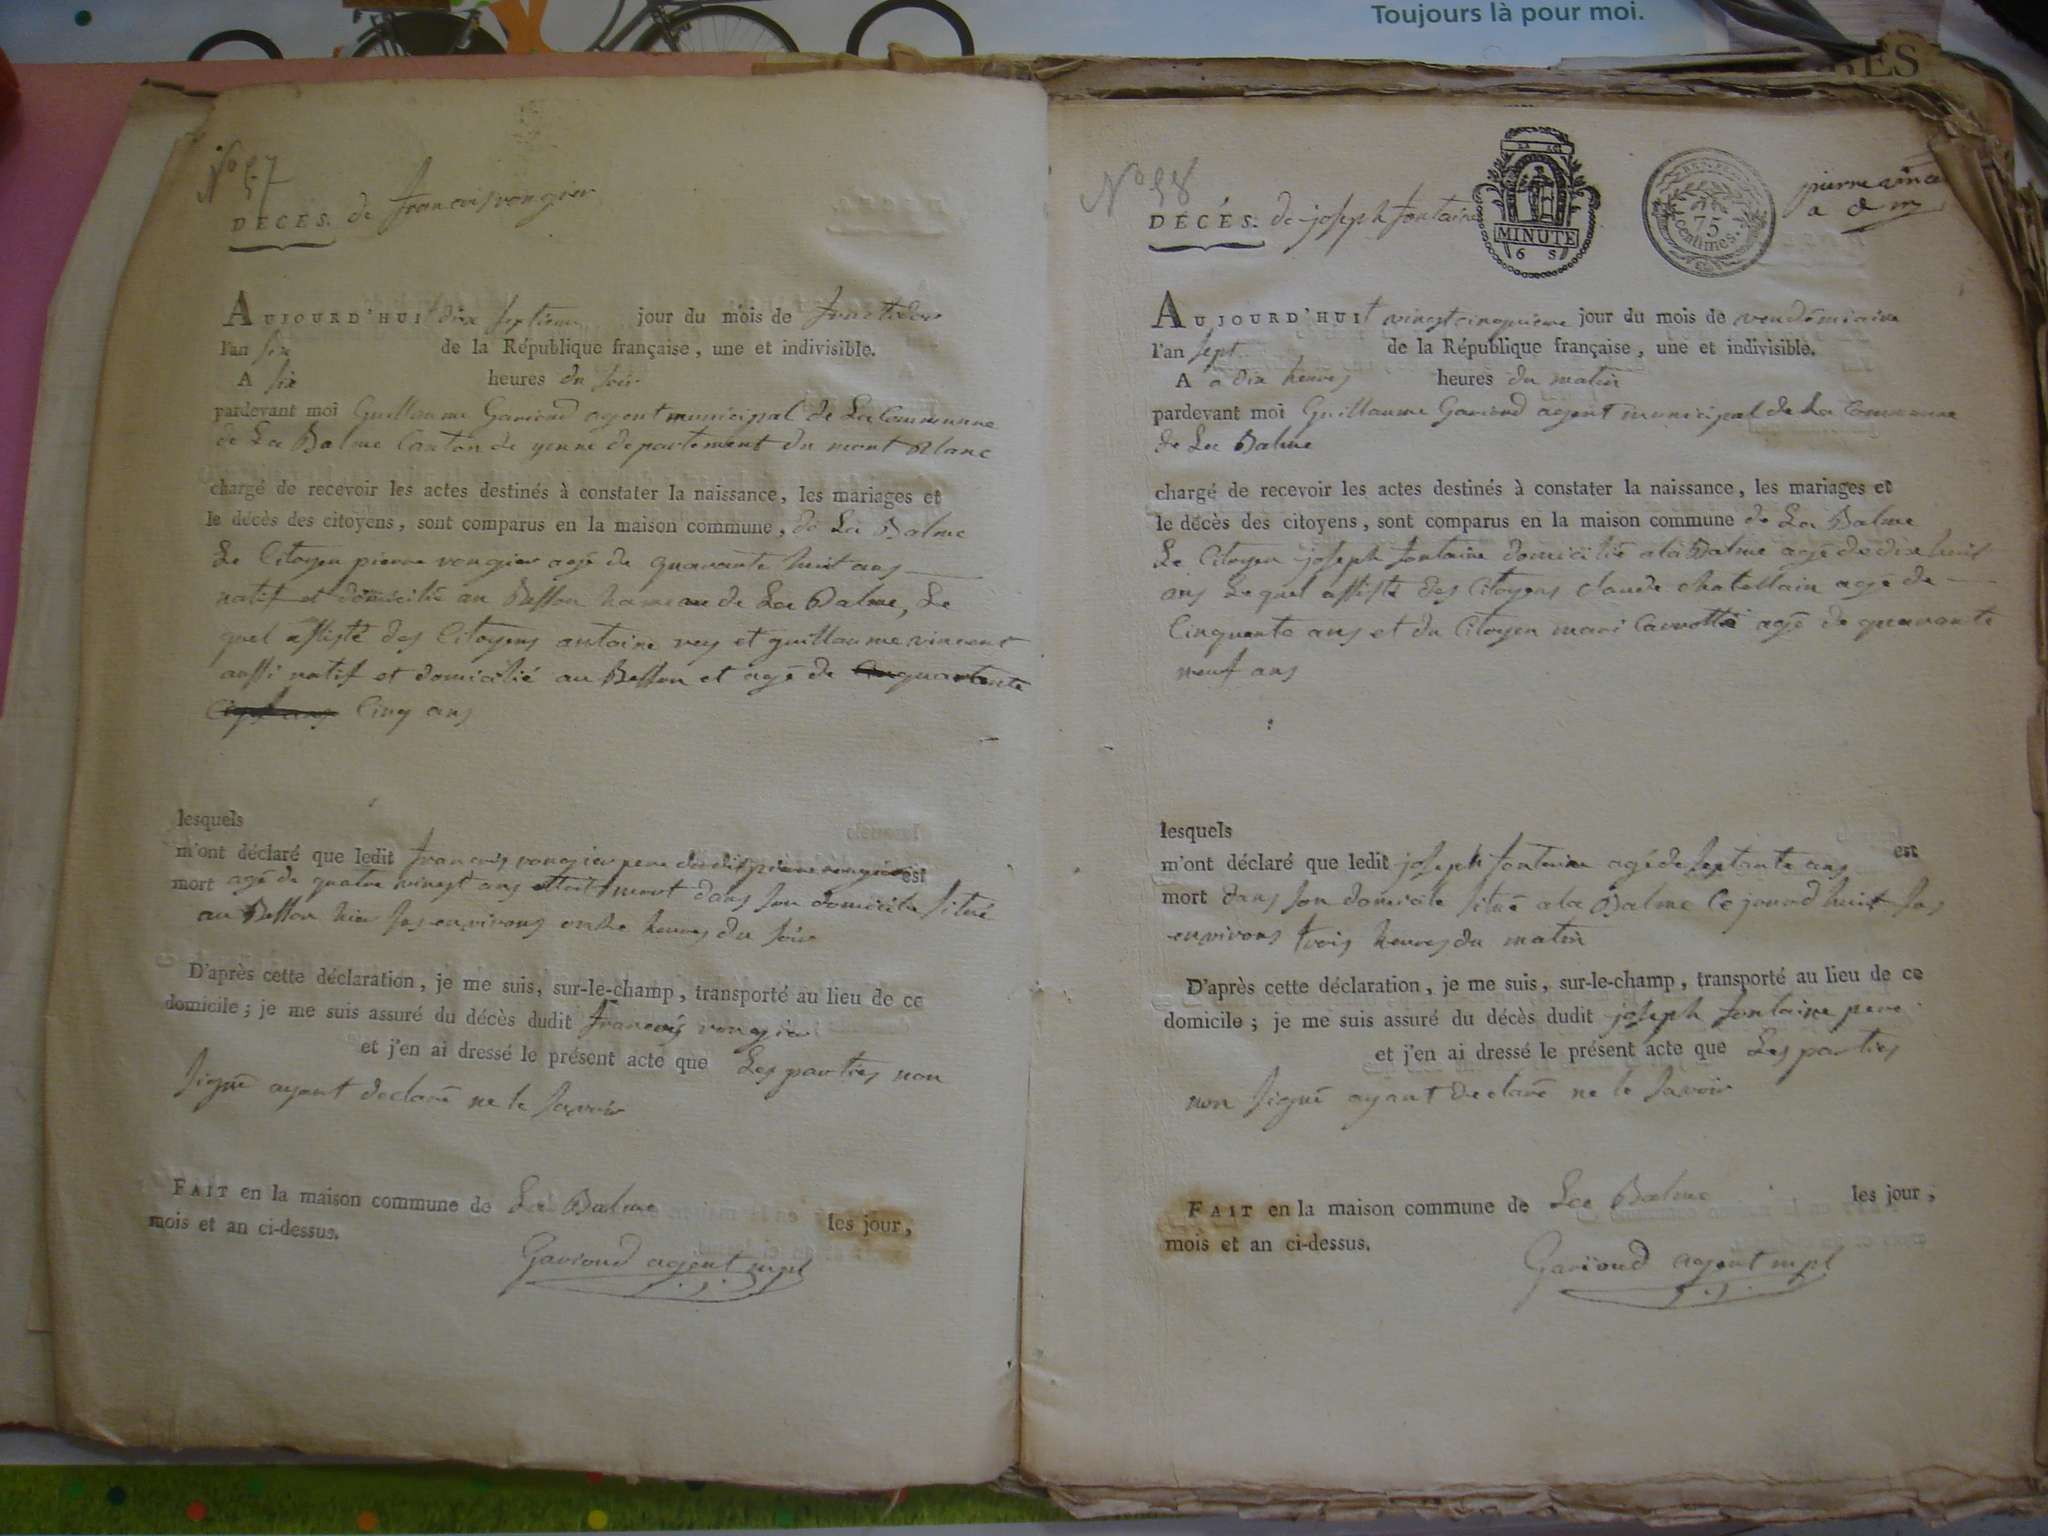 Toujours là pour moi.
N° 57
DÉCÈS. de francois vongier
AUJOURD'HUI dix septieme jour du mois de fructidor
l'an six de la République française, une et indivisible.
A six heures du soir
pardevant moi Guillaume Gavioud agent municipal de La Commune
de La Balme Canton de yenne departement du mont Blanc
chargé de recevoir les actes destinés à constater la naissance, les mariages et
le décès des citoyens, sont comparus en la maison commune, de La Balme
Le Citoyen pierre vongier agé de quarante huit ans
natif et domicilié au Besson hameau de La Balme, Le
quel assisté des Citoyens antoine rey et guillaume vincent
aussi natif et domicilié au Besson et agé de quarante
Cinq ans
lesquels
m'ont déclaré que ledit francois vongier pere dudit pierre vongier est
mort agé de quatre vingt ans etoit mort dans son domicile situé
au Besson hier sas environs onze heures du soir
D'après cette déclaration, je me suis, sur-le-champ, transporté au lieu de ce
domicile; je me suis assuré du décès dudit francois vongier
et j'en ai dressé le présent acte que Les parties non
signé ayant declaré ne le savoir
FAIT en la maison commune de La Balme les jour,
mois et an ci-dessus.
Gavioud agent mpl
N° 58
DÉCÈS. de joseph fontaine
MINUTE
6 S
75
centimes.
pierre
AUJOURD'HUI vingt cinquieme jour du mois de vendémiaire
l'an sept de la République française, une et indivisible.
A a dix heures heures du matin
pardevant moi Guillaume Gavioud agent municipal de La Commune
de La Balme
chargé de recevoir les actes destinés à constater la naissance, les mariages et
le décès des citoyens, sont comparus en la maison commune de La Balme
Le Citoyen joseph fontaine domicilié a la Balme agé de dix huit
ans Le quel assisté des Citoyens claude chatellain agé de
Cinquante ans et du Citoyen mari agé de quarante
neuf ans
lesquels
m'ont déclaré que ledit joseph fontaine agé de septante ans est
mort dans son domicile situé a la Balme Ce jourd huit sas
environs trois heures du matin
D'après cette déclaration, je me suis, sur-le-champ, transporté au lieu de ce
domicile; je me suis assuré du décès dudit joseph fontaine pere
et j'en ai dressé le présent acte que Les parties
non signé ayant declaré ne le savoir
FAIT en la maison commune de La Balme les jour,
mois et an ci-dessus.
Gavioud agent mpl